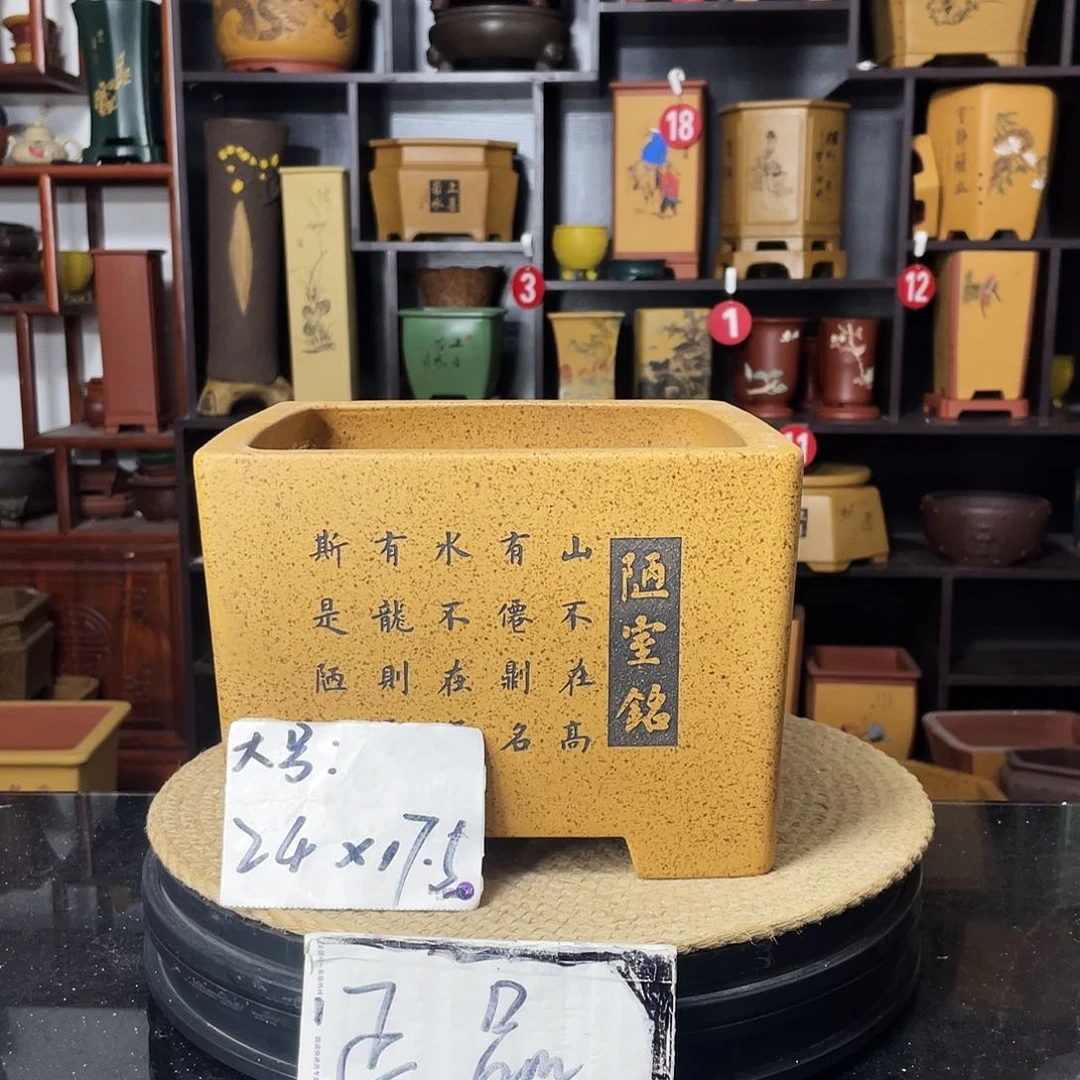 陋室銘
山不在高
有僊𠟭名
水不在
有龍則
斯是陋
大号:
24×17.5
正品
18
3
1
12
11